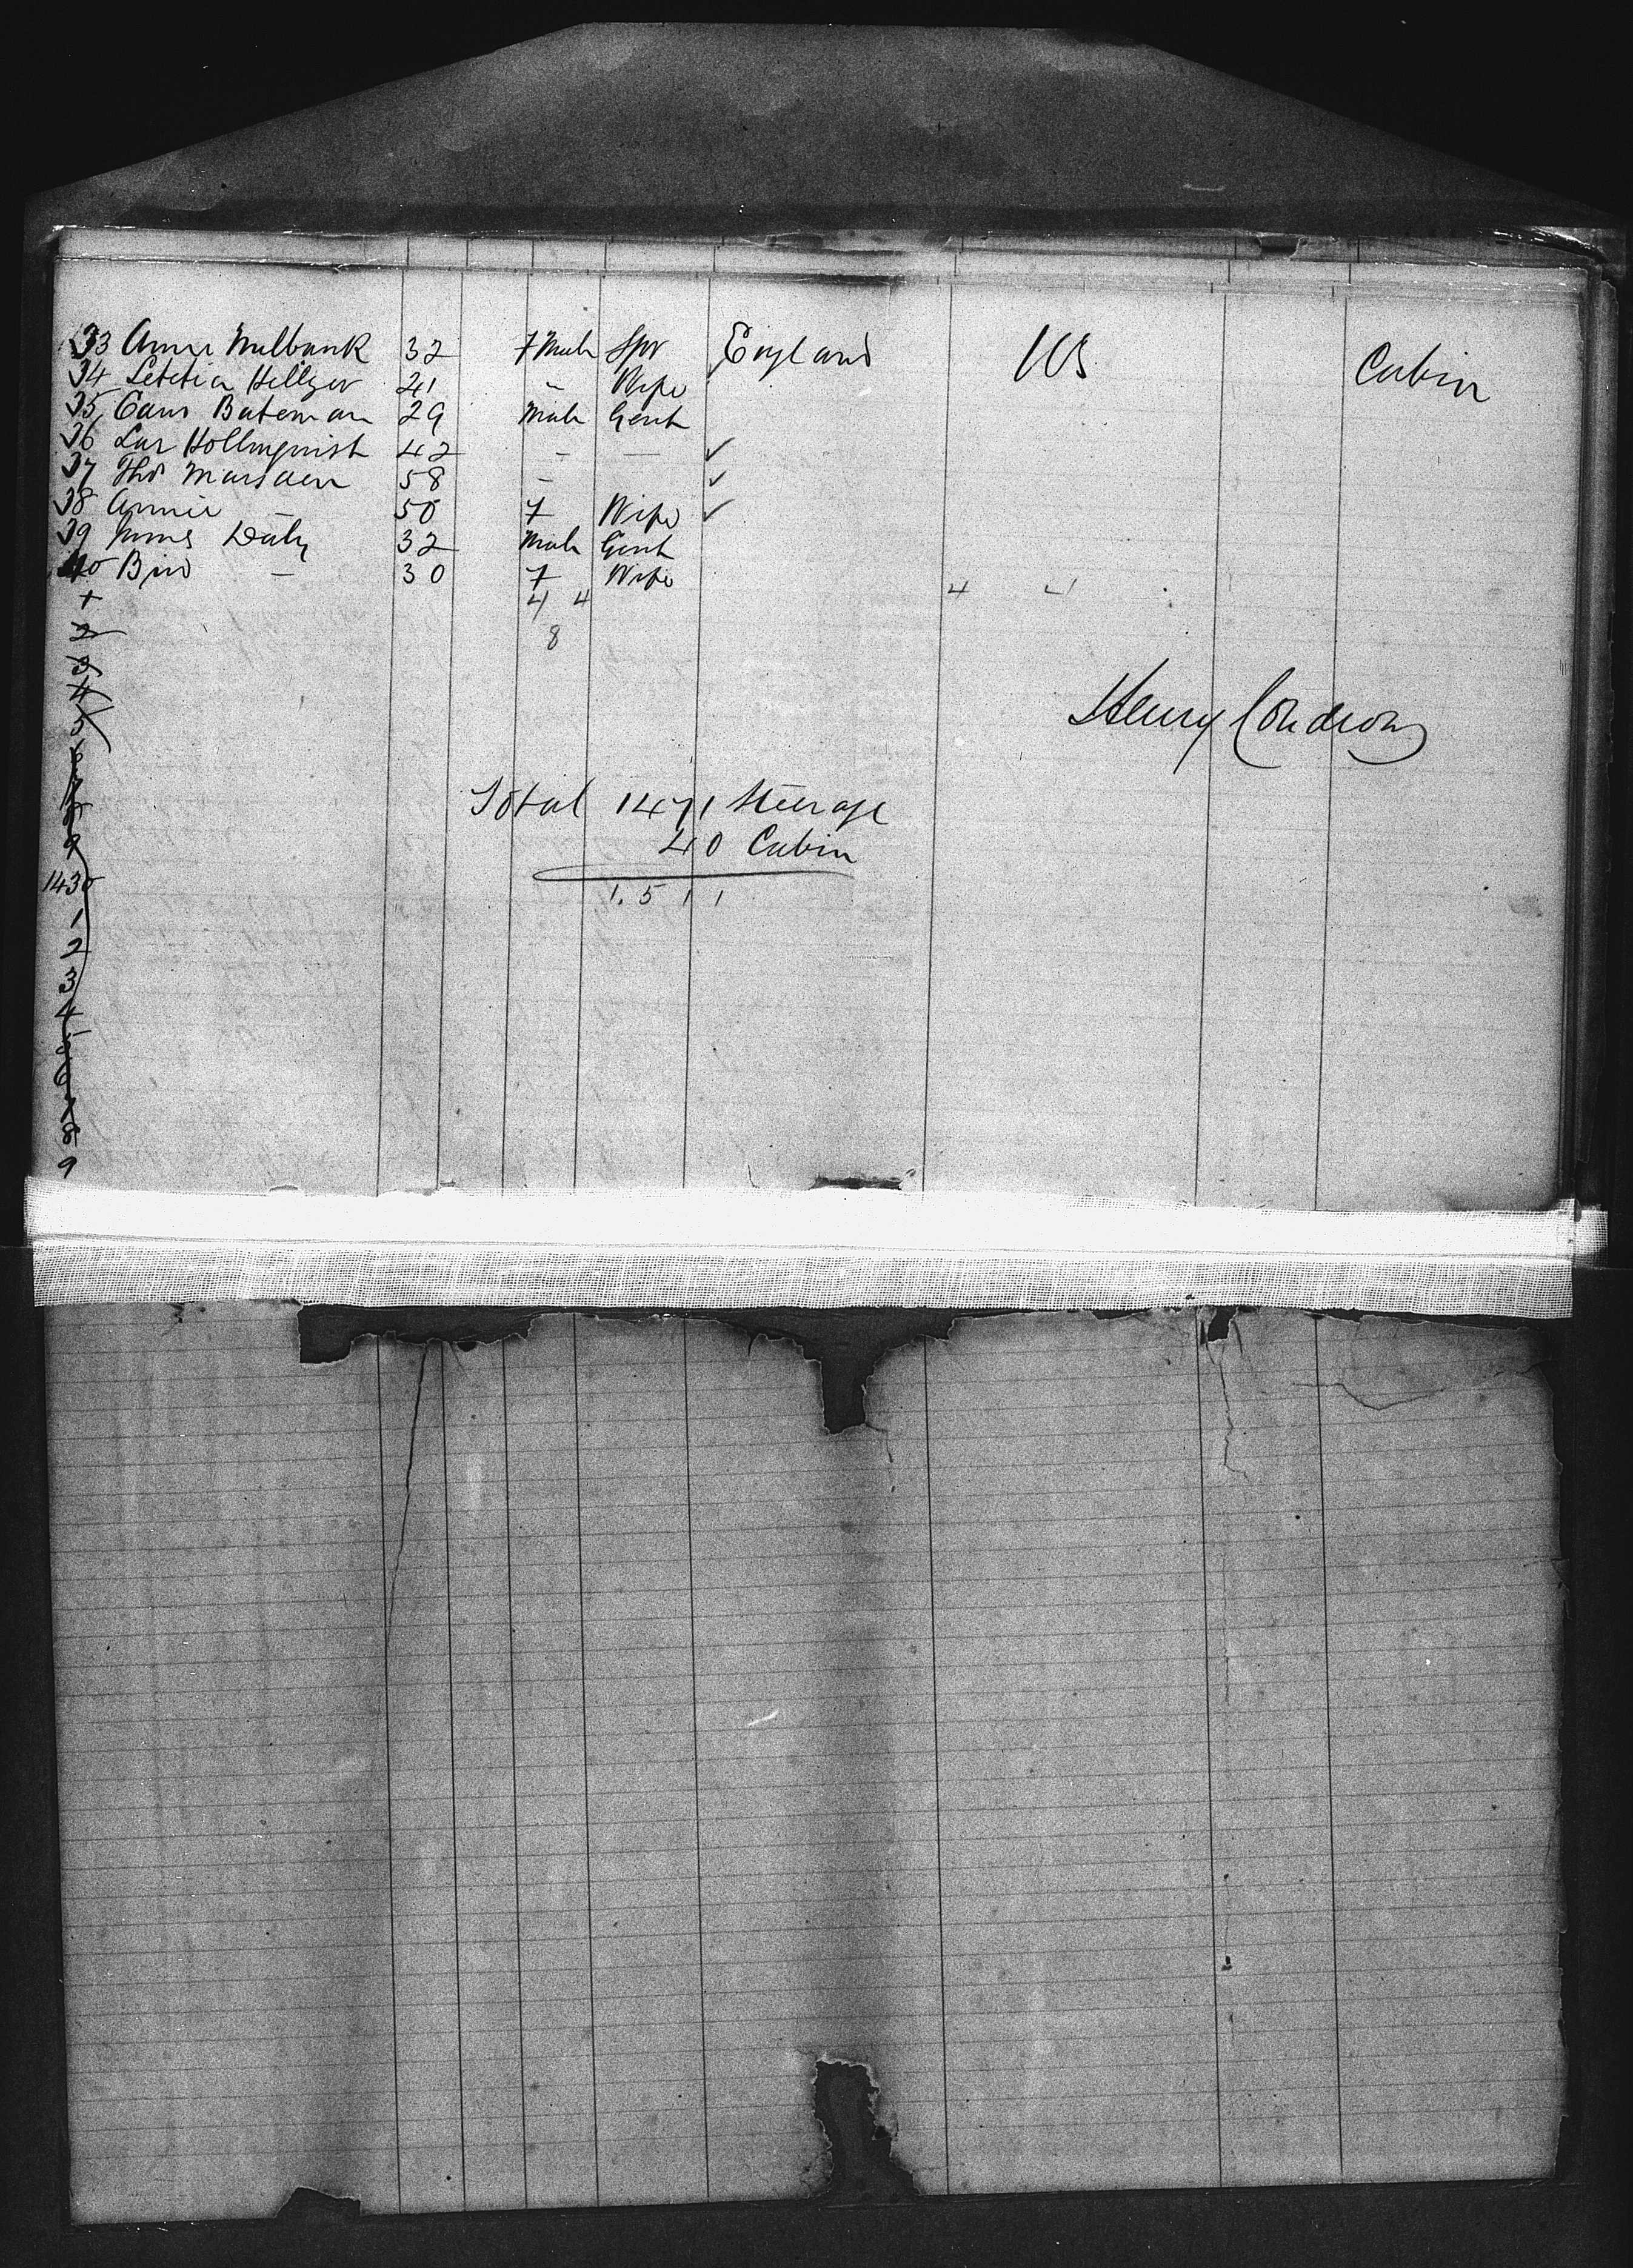 33 Anna Milbank 32 F Male Spr England US Cabin
34 Letitia Hillyer 41 " Wife
35 Bateman 29 Male Gent
36 Lar Hollmquist 42 - - ✓
37 Thos Marsden 58 - ✓
38 Annie - 50 F Wife ✓
39 James Daly 32 Male Gent
40 - 30 F Wife
4 4 4 4
8
Henry Condron
Total 1471 Steerage
40 Cabin
1.511
1
2
3
4
5
6
7
8
9
1430
1
2
3
4
5
6
7
8
9